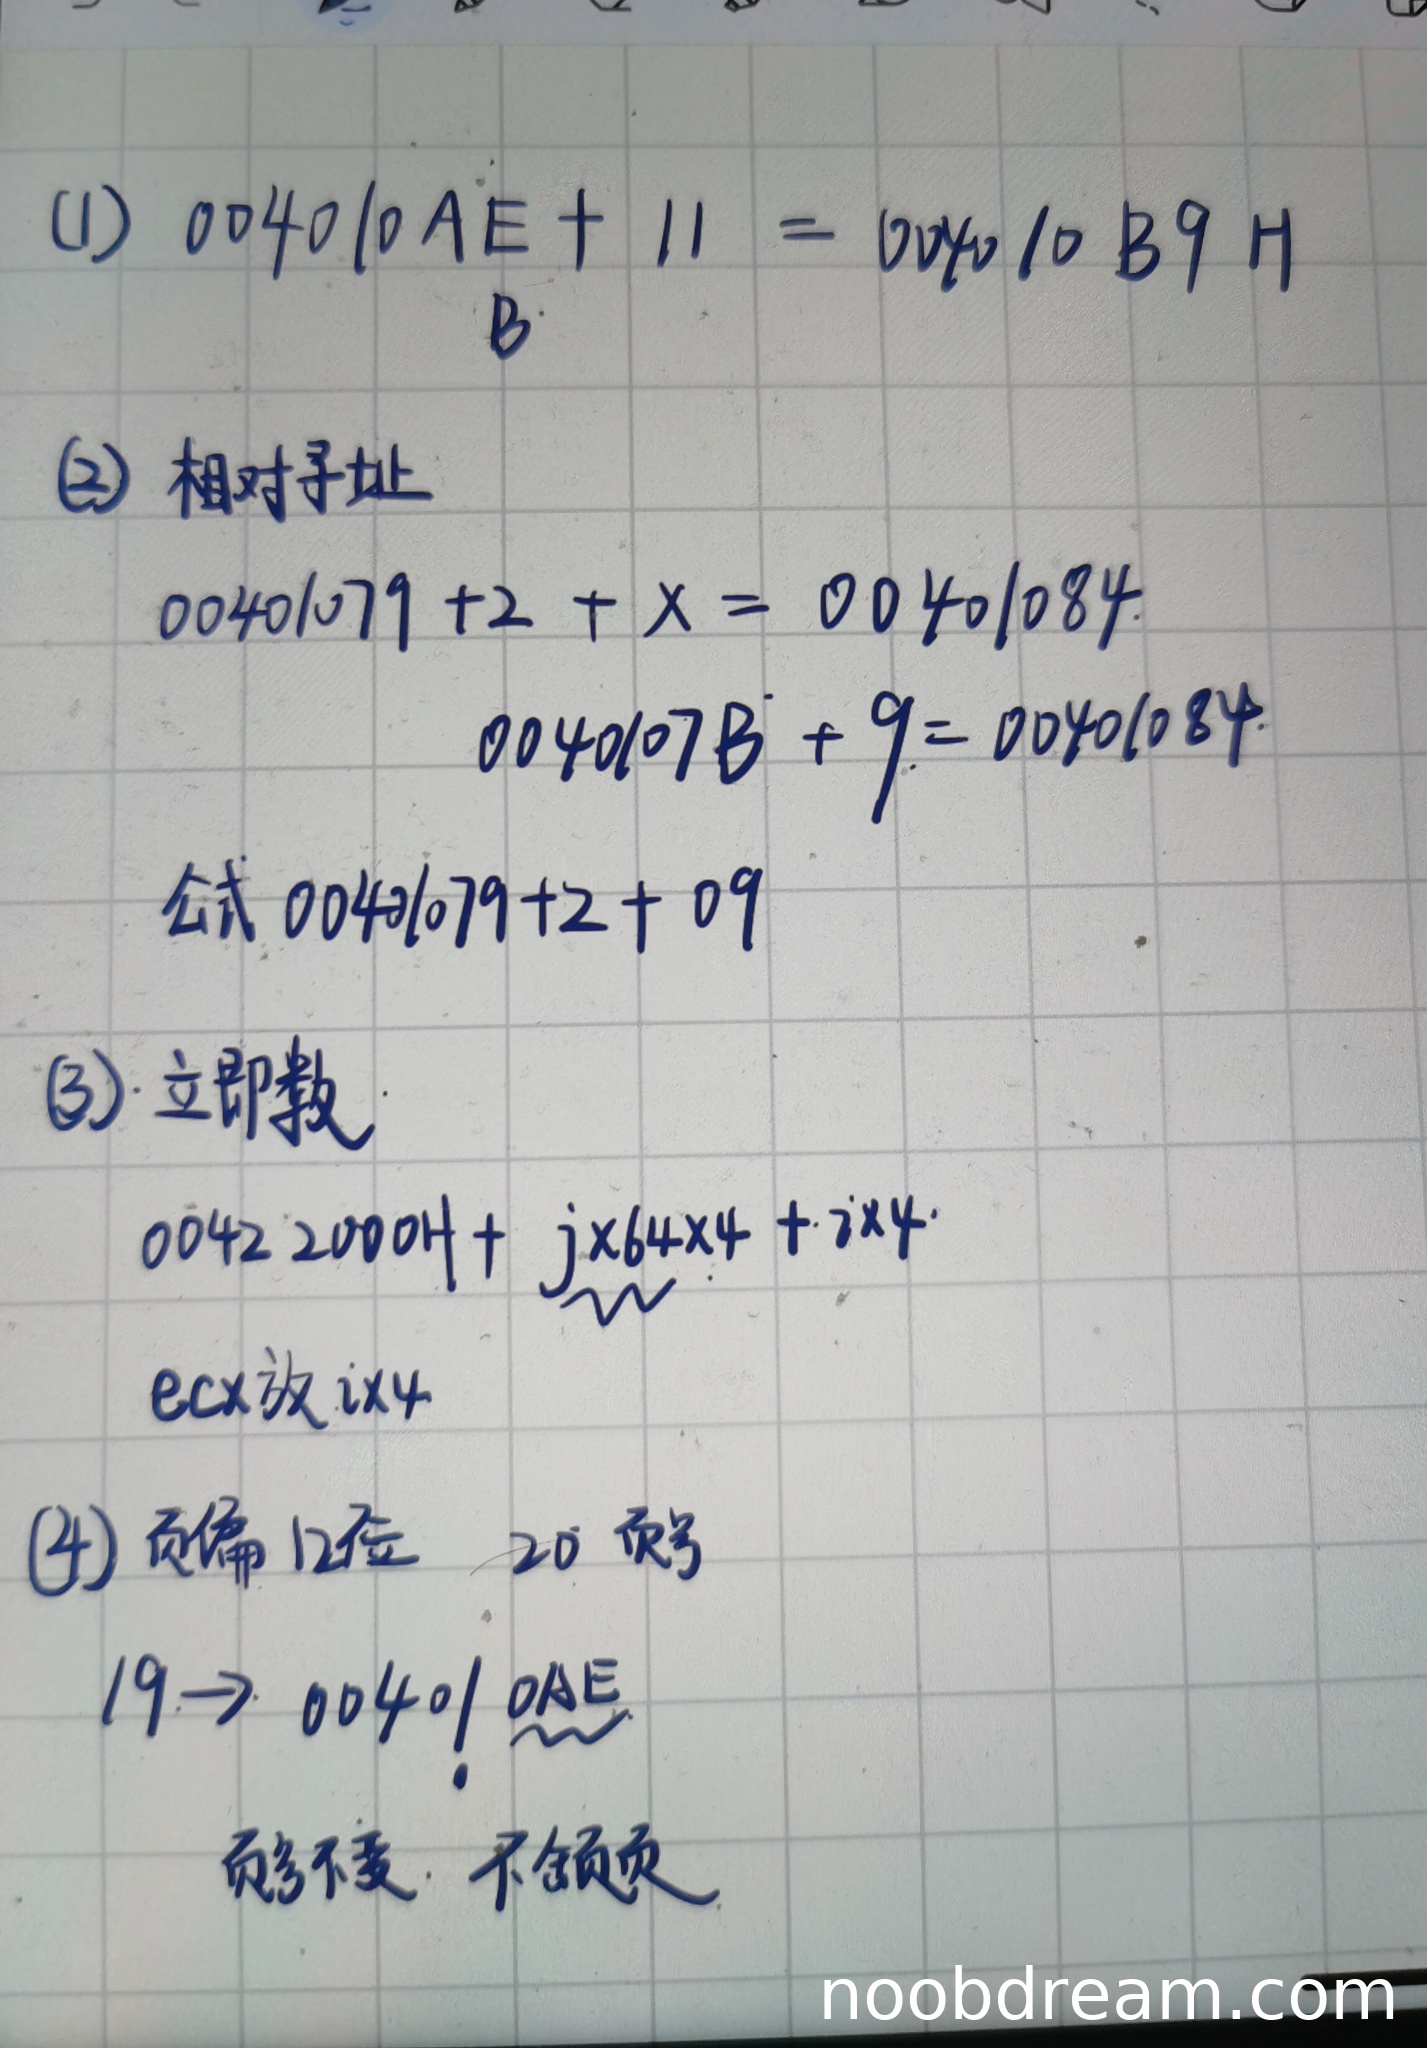 (1) 004010AE + 11 = 004010B9H
B
(2) 相对寻址
00401079 + 2 + x = 00401084
0040107B + 9 = 00401084
公式 00401079 + 2 + 09
(3) 立即数
00422000H + j×64×4 + i×4
ecx放 i×4
(4) 页偏12位 20 页号
19 → 00401 0AE
页号不变 不缺页
noobdream.com